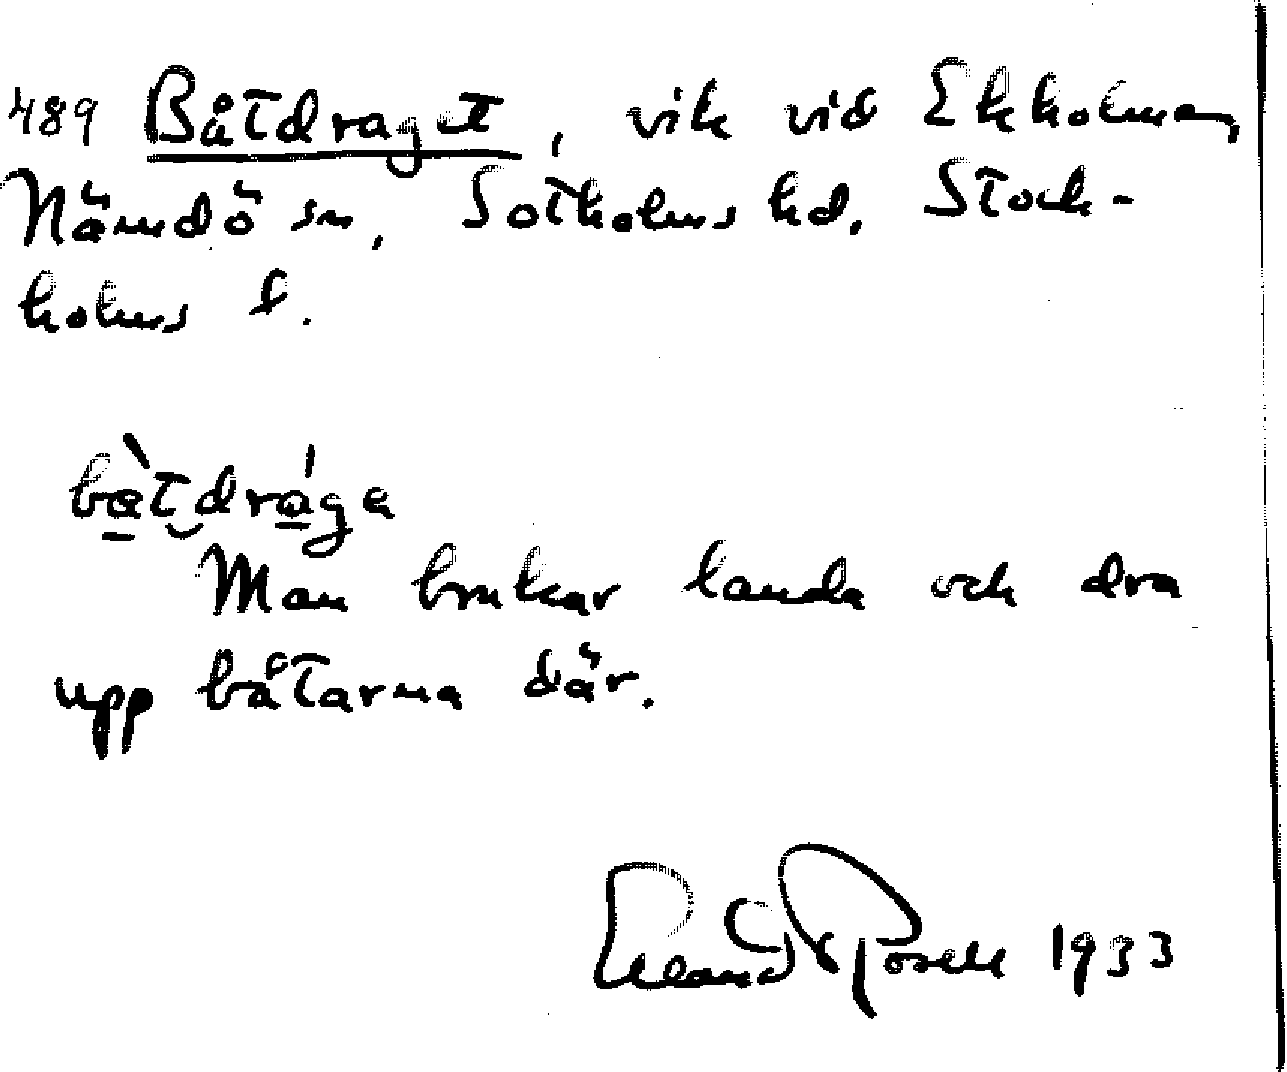 489 Båtdraget, vik vid Ekholmen,
Nämdö sn, Sotholms hd. Stock-
holms l.
bàtdrága
Man brukar landa och dra
upp båtarna där.
Erland Rosell 1933